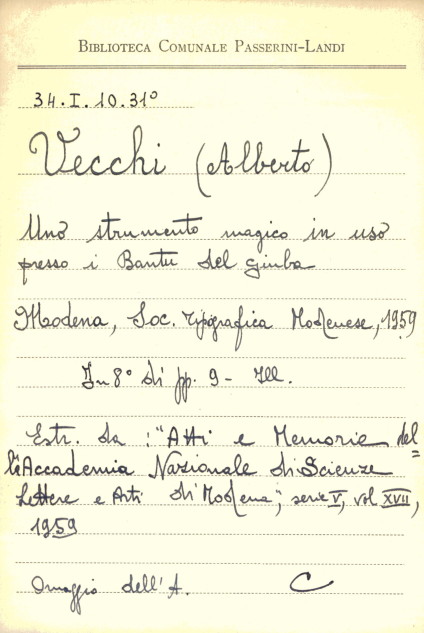 BIBLIOTECA COMUNALE PASSERINI-LANDI
34.I.10.31°
Vecchi (Alberto)
Uno strumento magico in uso
presso i Bantu del Giuba
Modena, Soc. Tipografica Modenese, 1959
In 8° di pp. 9 - Ill.
Estr. da : "Atti e Memorie del=
l'Accademia Nazionale di Scienze
Lettere e Arti di Modena", serie V, vol XVII,
1959
Omaggio dell'A. C